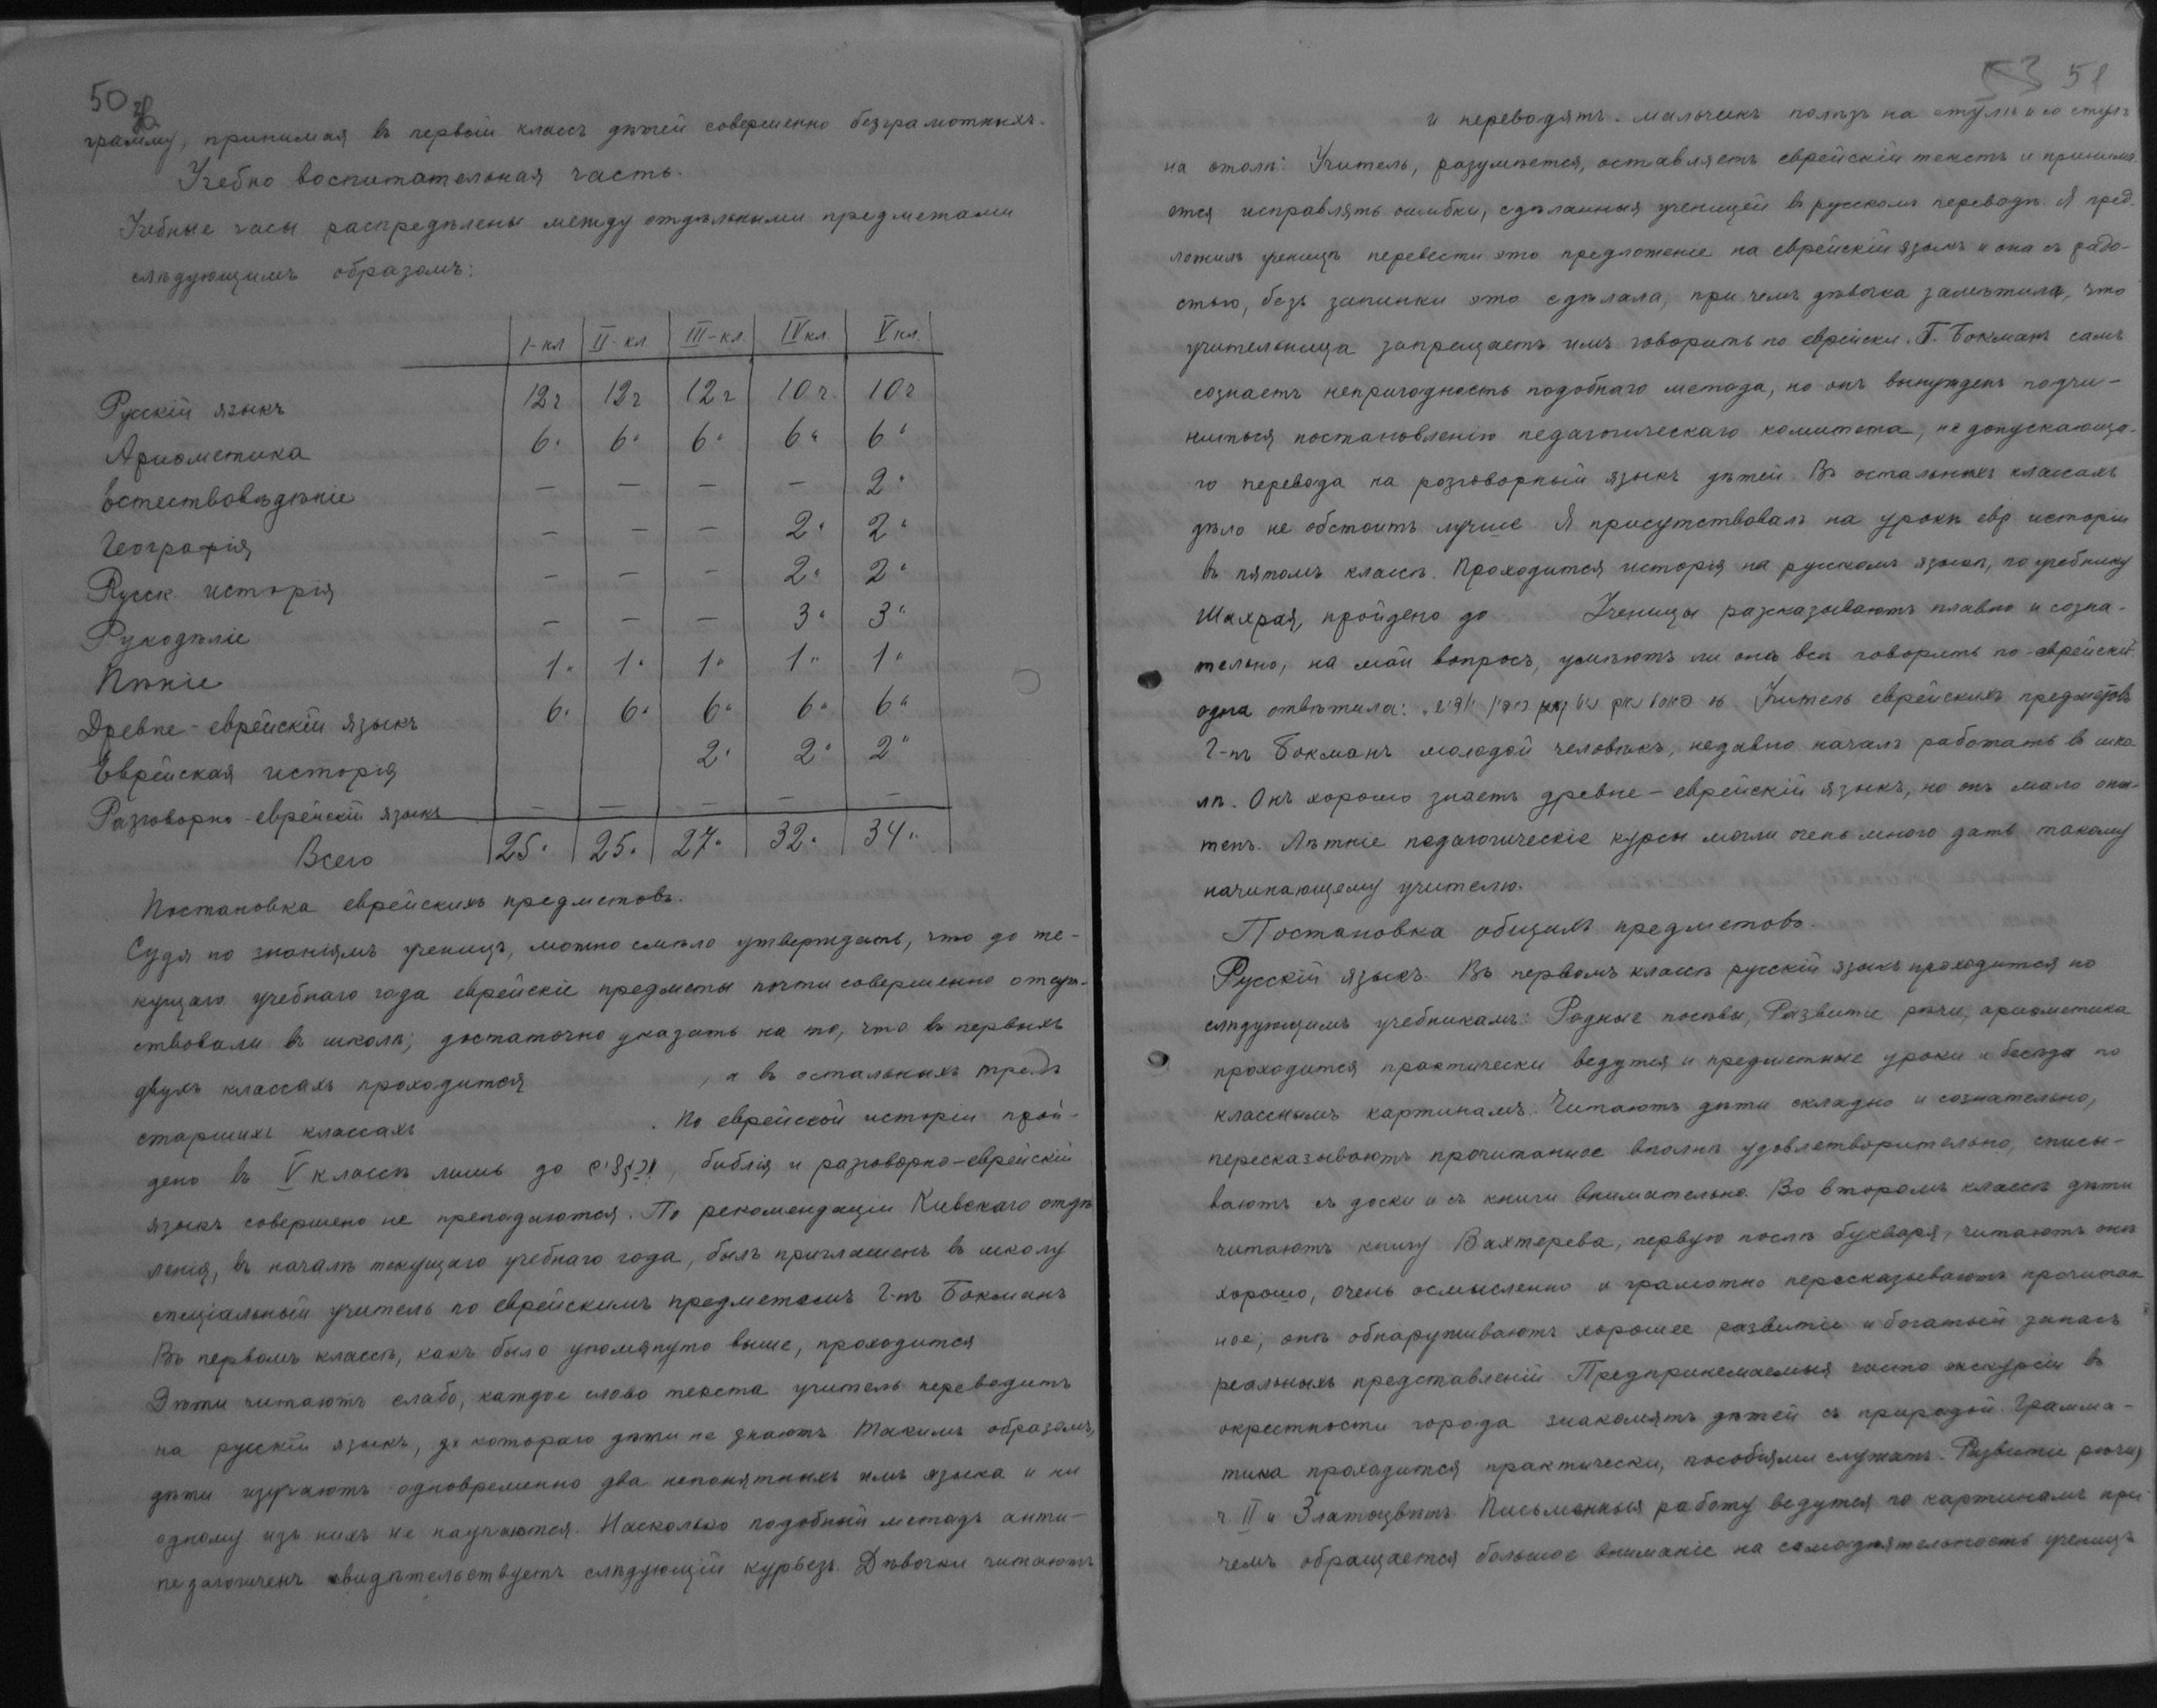 50 об
грамму, принимая въ первый классъ дѣтей совершенно безграмотныхъ.
Учебно воспитательная часть.
Учебные часы распредѣлены между отдѣльными предметами
слѣдующимъ образомъ:
I-кл II-кл III-кл. IV кл. V кл.
Русскій языкъ 12 ч 12 ч 12 ч 10 ч. 10 ч
Ариѳметика 6" 6" 6" 6" 6"
Естествовѣдѣніе — — — — 2"
Географія — — — 2" 2"
Русск. исторія — — — 2" 2"
Рукодѣліе — — — 3" 3"
Пѣніе 1" 1" 1" 1" 1"
Древне-еврейскій языкъ 6" 6" 6" 6" 6"
Еврейская исторія 2" 2" 2"
Разговорно-еврейскій языкъ — — — — —
Всего 25" 25" 27" 32" 34"
Постановка еврейскихъ предметовъ.
Судя по знаніямъ ученицъ, можно смѣло утверждать, что до те-
кущаго учебнаго года еврейскіе предметы почти совершенно отсут-
ствовали въ школѣ; достаточно указать на то, что въ первыхъ
двухъ классахъ проходится , а въ остальныхъ трехъ
старшихъ классахъ . По еврейской исторіи прой-
дено въ V классѣ лишь до , библія и разговорно-еврейскій
языкъ совершено не преподаются. По рекомендаціи Кіевскаго отдѣ
ленія, въ началѣ текущаго учебнаго года, былъ приглашенъ въ школу
спеціальный учитель по еврейскимъ предметамъ Г-нъ Бокманъ
Въ первомъ классѣ, какъ было упомянуто выше, проходится
Дѣти читаютъ слабо, каждое слово текста учитель переводитъ
на русскій языкъ, до котораго дѣти не знаютъ. Такимъ образомъ,
дѣти изучаютъ одновременно два непонятныхъ имъ языка и ни
одному изъ нихъ не научаются. Насколько подобный методъ анти-
педагогиченъ свидѣтельствуетъ слѣдующій курьезъ. Дѣвочки читаютъ
53 51
и переводятъ. мальчикъ полѣзъ на стулъ и со стула
на столъ: Учитель, разумѣется, оставляетъ еврейскій текстъ и принима
ется исправлять ошибки, сдѣланныя ученицей въ русскомъ переводѣ. Я пред-
ложилъ ученицѣ перевести это предложеніе на еврейскій языкъ и она съ радо-
стью, безъ запинки это сдѣлала, при чемъ дѣвочка замѣтила, что
учительница запрещаетъ имъ говорить по еврейски. Г. Бокманъ самъ
сознаетъ непригодность подобнаго метода, но онъ вынужденъ подчи-
ниться постановленію педагогическаго комитета, не допускающа-
го перевода на розговорный языкъ дѣтей. Въ остальныхъ классахъ
дѣло не обстоитъ лучше Я присутствовалъ на урокѣ евр исторіи
въ пятомъ классѣ. Проходится исторія на русскомъ языкѣ, по учебнику
Шахрая, пройдено до Ученицы разсказываютъ плавно и созна-
тельно, на мой вопросъ, умѣютъ ли онѣ всѣ говорить по-еврейски
одна отвѣтила: Учитель еврейскихъ предметовъ
Г-нъ Бокманъ молодой человѣкъ, недавно началъ работать въ шко
лѣ. Онъ хорошо знаетъ древне-еврейскій языкъ, но онъ мало опы-
тенъ. Лѣтніе педагогическіе курсы могли очень много дать такому
начинающему учителю.
Постановка общихъ предметовъ.
Русскій языкъ. Въ первомъ классѣ русскій языкъ проходится по
слѣдующимъ учебникамъ: Родные посѣвы, Развитіе рѣчи, ариѳметика
проходится практически ведутся и предметные уроки и бесѣда по
класснымъ картинамъ. Читаютъ дѣти складно и сознательно,
пересказываютъ прочитанное вполнѣ удовлетворительно, списы-
ваютъ съ доски и съ книги внимательно. Во второмъ классѣ дѣти
читаютъ книгу Вахтерева, первую послѣ букваря, читаютъ онѣ
хорошо, очень осмысленно и грамотно пересказываютъ прочитан
ное; онѣ обнаруживаютъ хорошее развитіе и богатый запасъ
реальныхъ представленій Предпринемаемыя часто экскурсіи въ
окрестности города знакомятъ дѣтей съ природой. Грамма-
тика проходится практически, пособіями служатъ. Развитіе рѣчи
ч II и Златоцвѣтъ. Письменныя работу ведутся по картинамъ при
чемъ обращается большое вниманіе на самодѣятельность ученицъ